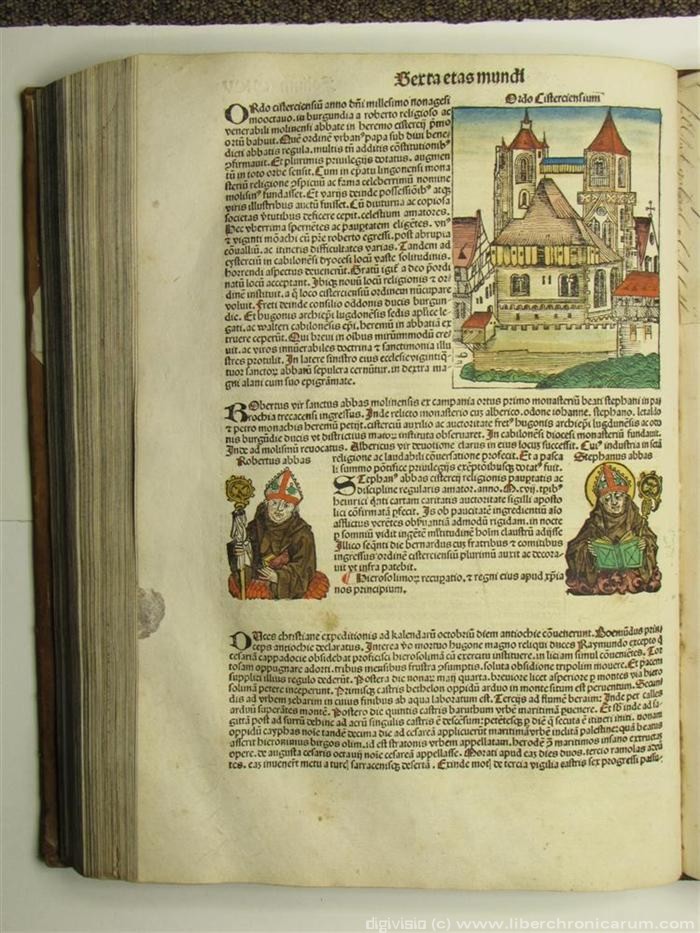 Sexta etas mundi
Ordo Cisterciensium
ORdo cisterciensiũ anno dñi millesimo nonagesi
mooctauo. in burgundia a roberto religioso ac
venerabili molinensi abbate in heremo cistercij p̃mo
ortũ habuit. Quẽ ordinẽ vrbanꝰ papa sub diui bene
dicti abbatis regula. multis tñ additis cõstitutionibꝰ
ↄfirmauit. Et plurimis priuilegijs dotatus. augmen
tũ in toto orbe sensit. Cum in ep̃atu lingonensi mona
steriũ religione ↄspicuũ ac fama celeberrimũ nomine
molismꝰ fundasset. Et varijs deinde possessiõibꝰ atqꝫ
viris illustribus auctũ fuisset. Cũ diuturna ac copiosa
societas ṽtutibus deficere cepit. celestium amatores.
hec vberrima spernẽtes ac paupertatem eligẽtes. vnꝰ
⁊ viginti mõachi cũ p̃re roberto egressi. post abrupta
cõualliũ. ac itineris difficultates varias. Tandem ad
cysterciũ in cabilonẽsi dyocesi locũ vaste solitudinis.
horrendi aspectus deuenerũt. Gratũ igit̃ a deo p̃ordi
natũ locũ acceptant. Ibiqꝫ nouũ locũ religionis ⁊ ordi
dinẽ instituit. a q̃ loco cisterciensiũ ordinem nũcupare
voluit. Freti deinde consilio oddonis ducis burgun
die. Et hugonis archiep̃i lugdonẽsis sedis aplice le
gati. ac walteri cabilonẽsis ep̃i. heremũ in abbatiã ex
truere ceperũt. Qui breui in oibus mirũmmodũ cre
uit. ac viros innũerabiles doctrina ⁊ sanctimonia illu
stres protulit. In latere sinistro eius ecclesie vigintiq̃
tuor sanctoꝝ abbatũ sepulcra cernũtur. in dextra ma
gni alani cum suo epigrãmate.
RObertus vir sanctus abbas molinensis ex campania ortus primo monasteriũ beati stephani in pa
rochia trecacensi ingressus. Inde relicto monasterio cuz alberico. odone iohanne. stephano. letaldo
⁊ petro monachis heremũ petijt. cisterciũ auxilio ac auctoritate fretꝰ hugonis archiep̃i lugdunẽsis ac oto
nis burgũdie ducis vt districtius maioꝝ instituta obseruaret. In cabilonẽsi diocesi monasteriũ fundauit.
Inde ad molismũ reuocatus. Albericus vir deuotione clarus in eius locuz successit. Cuiꝰ industria in scã
religione ac laudabili cõuersatione profecit. Et a pasca
li summo põtifice priuilegijs exẽptõibusqꝫ dotatꝰ fuit.
Robertus abbas
Stephanus abbas
STephanꝰ abbas cistercij religionis paupertatis ac
discipline regularis amator. anno. M.cvij. tp̃ibꝰ
heinrici q̃nti cartam caritatis auctoritate sigilli aposto
lici cõfirmatã ꝑfecit. Is ob paucitatẽ ingredientiũ alo
afflictus verẽtes obseruantiã admodũ rigidam. in nocte
ꝑ somniũ vidit ingẽtẽ institudinẽ hoĩm claustrũ adijsse
Illico seq̃nti die bernardus cuz fratribus ⁊ comitibus
ingressus ordinẽ cisterciensiũ plurimũ auxit ac decora
uit vt infra patebit.
Hierosolimoꝝ recupatio. ⁊ regni eius apud xp̃ia
nos principium.
DUces christiane expeditionis ad kalendarũ octobriũ diem antiochie cõuenerunt. Boemũdus prin
ceps antiochie declaratus. Interea vo mortuo hugone magno reliqui duces Raymundo excepto q̃
cesareã cappadocie obsidebat proficisci hierosolimã cũ exercitu instituere. in liciam simul cõuenietes. Tor
tosam oppugnare adorti. tribus mensibus frustra ↄsumptis. soluta obsidione tripolim mouere. Et pacem
supplici illius regulo dederũt. Postera die nonaꝝ maij quarta. breuiore licet asperiore ꝑ montes via hiero
solimã petere inceperunt. Primisqꝫ castris bethelon oppidũ arduo in monte situm est peruentum. Secun
dis ad vrbem zebarim in cuius finibus ab aqua laboratum est. Tercijs ad flumẽ beraim: Inde per calles
arduũ superãtes montẽ. Postero die quintis castris baruthum vrbẽ maritimã ꝑuenere. Et sb̾ inde ad sa
gittã post ad surrũ dehinc ad acrũ singulis castris ẽ descẽsum: petẽtesqꝫ ꝑ diẽ q̃ secuta ẽ itineri initi. nonam
oppidũ cayphas noĩe tandẽ decima die ad cesareã applicuerũt maritimã vrbẽ inditã palestine: quã beatus
asserit hieronimus birgos olim. id est stratonis vrbem appellatam. herodẽ ꝑ maritimos insano extructaꝫ
opere. de augusta cesaris octauij noĩe cesareã appellasse. Morati apud eaꝫ dies duos. tercio ramolas acce
tes. eaꝫ inueneꝝt metu a turcꝭ sarracenisqꝫ desertã. Exinde motꝭ de tercia vigilia castris sex progressi passu
digivisio (c) www.liberchronicarum.com